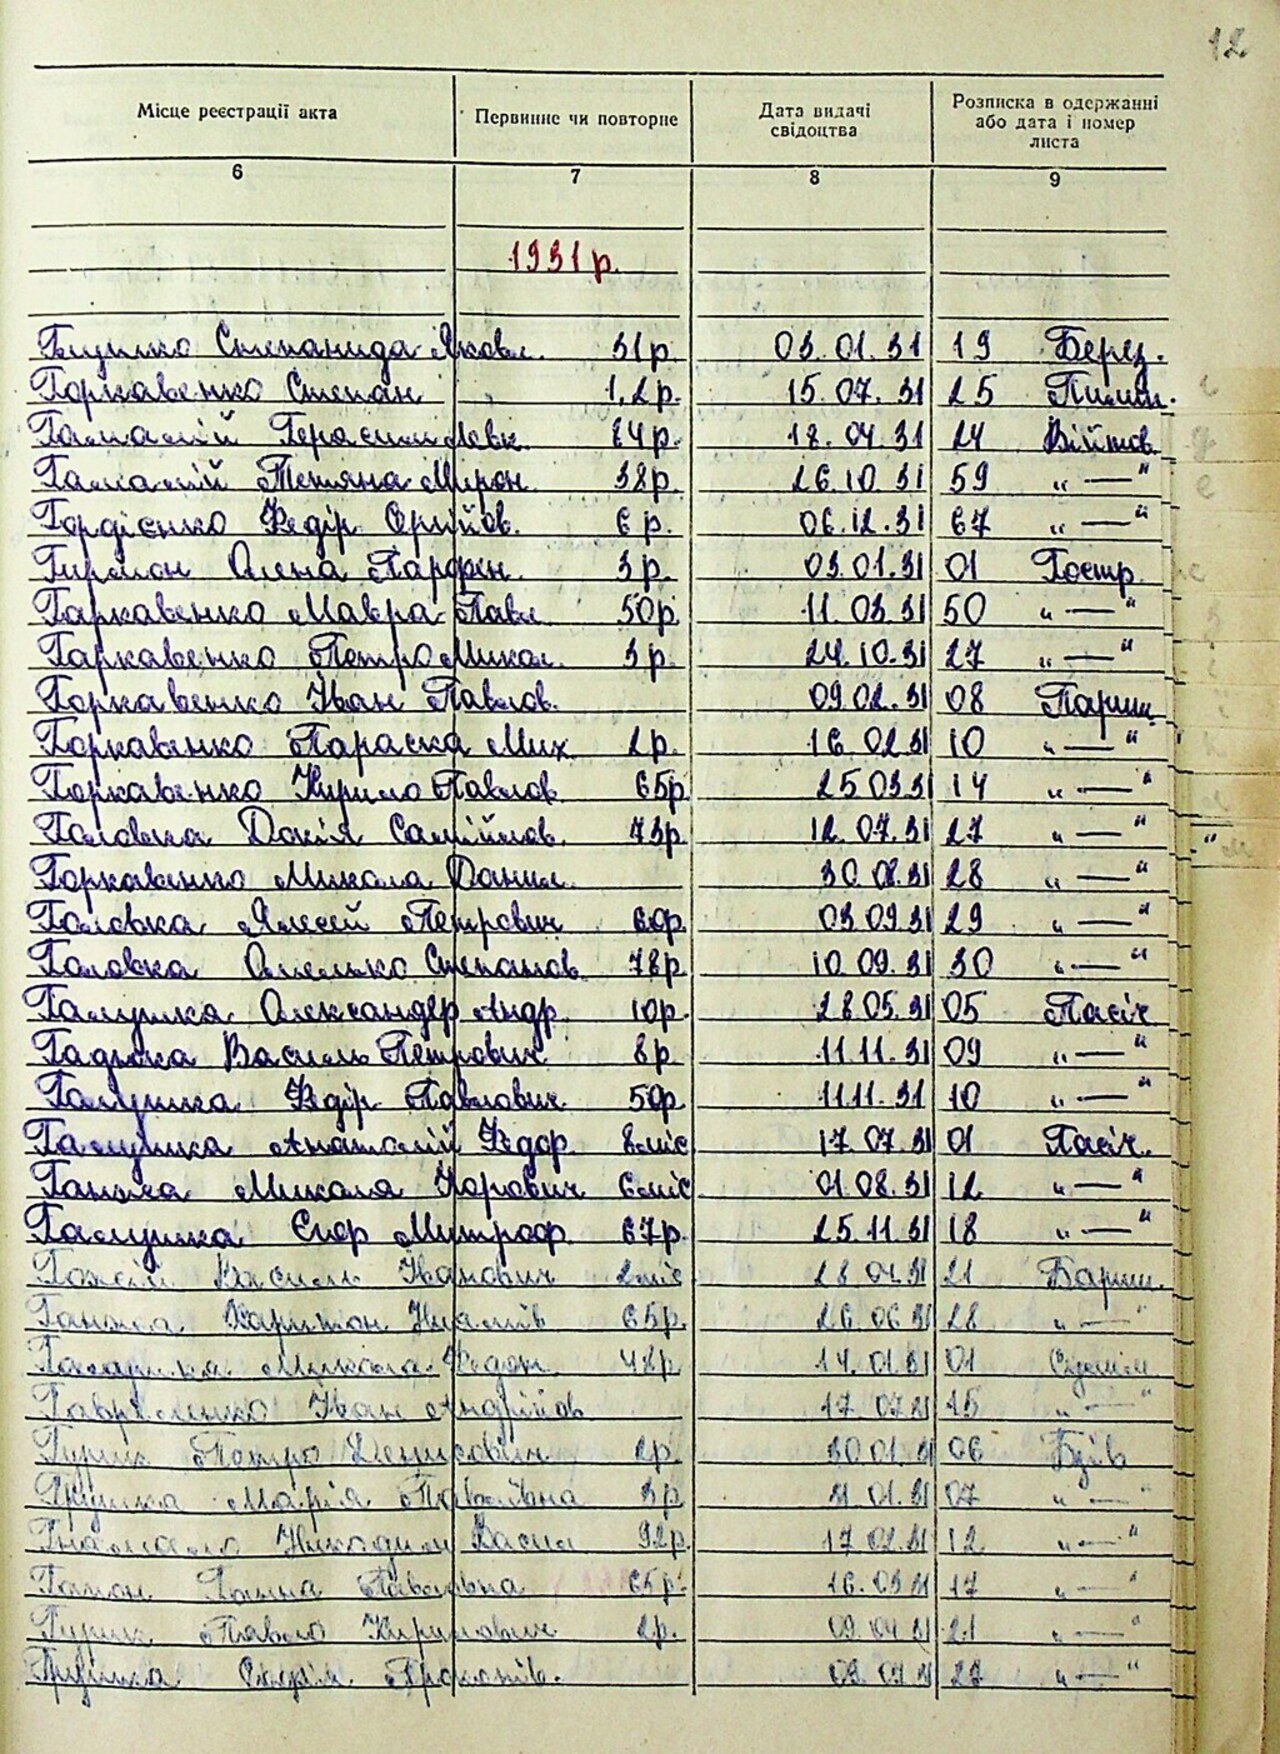 12
Місце реєстрації акта Первинне чи повторне Дата видачі свідоцтва Розписка в одержанні або дата і номер листа
6 7 8 9
1931 р.
Степанида Яковл. 31 р. 03.01.31 19 Берез.
Горкавенко Степан 1,2 р. 15.07.31 25
Гамалій Герасим Левк. 84 р. 18.04.31 24 Війтов.
Гамалій Тетяна Мирон. 38 р. 26.10.31 59 „ — "
Гордієнко Федір 6 р. 06.12.31 67 „ — "
Олена Парфен. 3 р. 03.01.31 01 Гостр.
Гаркавенко Мавра Павл. 50 р. 11.03.31 50 „ — "
Гаркавенко Петро Микол. 3 р. 24.10.31 27 „ — "
Горкавенко Іван Павлов. 09.02.31 08 Париш.
Горкавенко Параска Мих. 2 р. 16.02.31 10 „ — "
Горкавенко Кирило Павлов. 65 р. 25.03.31 14 „ — "
Головка Докія Самійлов. 73 р. 12.07.31 27 „ — "
Горкавенко Микола Данил. 30.08.31 28 „ — "
Головка Петрович 60 р. 03.09.31 29 „ — "
Головка Омелько Степанов. 78 р. 10.09.31 30 „ — "
Галушка Олександер Андр. 10 р. 28.05.31 05 Пасіч
Гадюка Василь Петрович 8 р. 11.11.31 09 „ — "
Галушка Федір Павлович 50 р. 11.11.31 10 „ — "
Галушка Анатолій Федор. 8 міс 17.07.31 01 Пасіч.
Ганжа Микола Карович 6 міс 01.08.31 12 „ — "
Галушка Єгор Митроф. 67 р. 25.11.31 18 „ — "
Василь Іванович 2 міс 28.04.31 21 Бариш.
Ганжа Харитон 65 р. 26.06.31 28 „ — "
Галушка Микола Федор. 48 р. 14.01.31 01
Гавриленко Іван Андрійов. 17.07.31 15 „ — "
Гурин Петро Денисович 2 р. 30.01.31 06 Бзів
Грушка Марія Павлівна 3 р. 31.01.31 07 „ — "
Никодим Васил. 92 р. 17.02.31 12 „ — "
Гапон Ганна Павловна 65 р. 16.03.31 17 „ — "
Гурин Павло Кирилович 2 р. 09.04.31 21 „ — "
Прокопів. 27 „ — "